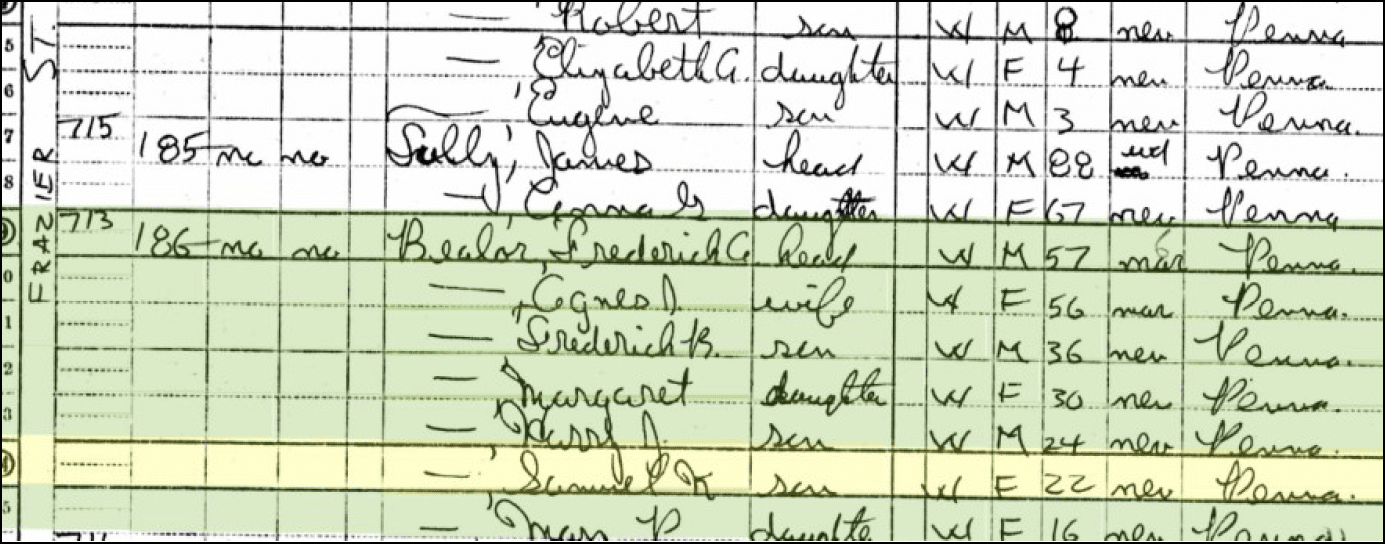 FRAZIER ST.
Robert son W M 8 nev Penna
5 Elizabeth A. daughter W F 4 nev Penna.
6 Eugene son W M 3 nev Penna.
7 715 185 no no James head W M 88 wd Penna.
8 daughter W F 67 nev Penna
713 186 no no Bealor, Frederick C. head W M 57 mar 6 Penna.
0 Agnes J. wife W F 56 mar Penna.
1 Frederick B. son W M 36 nev Penna.
2 Margaret daughter W F 30 nev Penna.
3 Harry J. son W M 24 nev Penna.
Samuel K son W F 22 nev Penna.
5 Mary P daughte W F 16 nev Penna